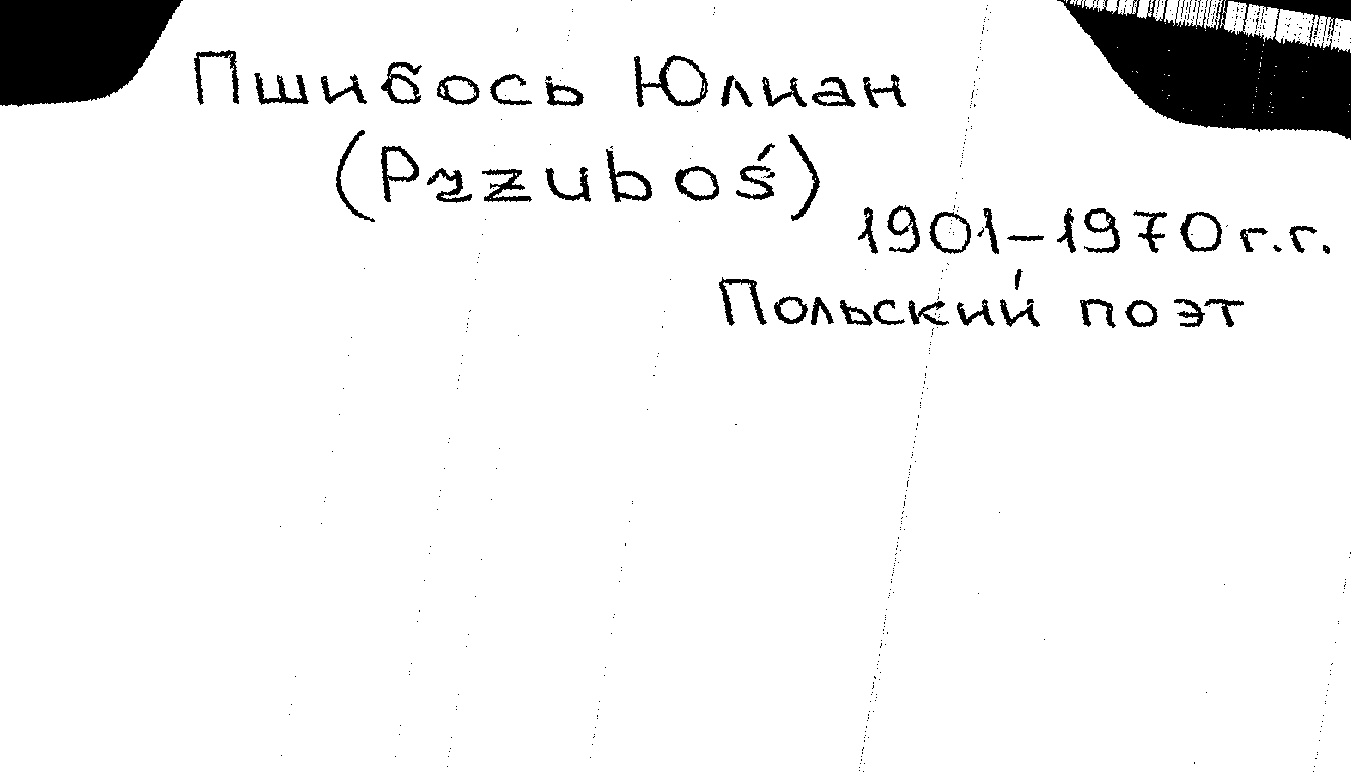 Пшибось Юлиан
(Przuboś)
1901-1970 г.г.
Польский поэт